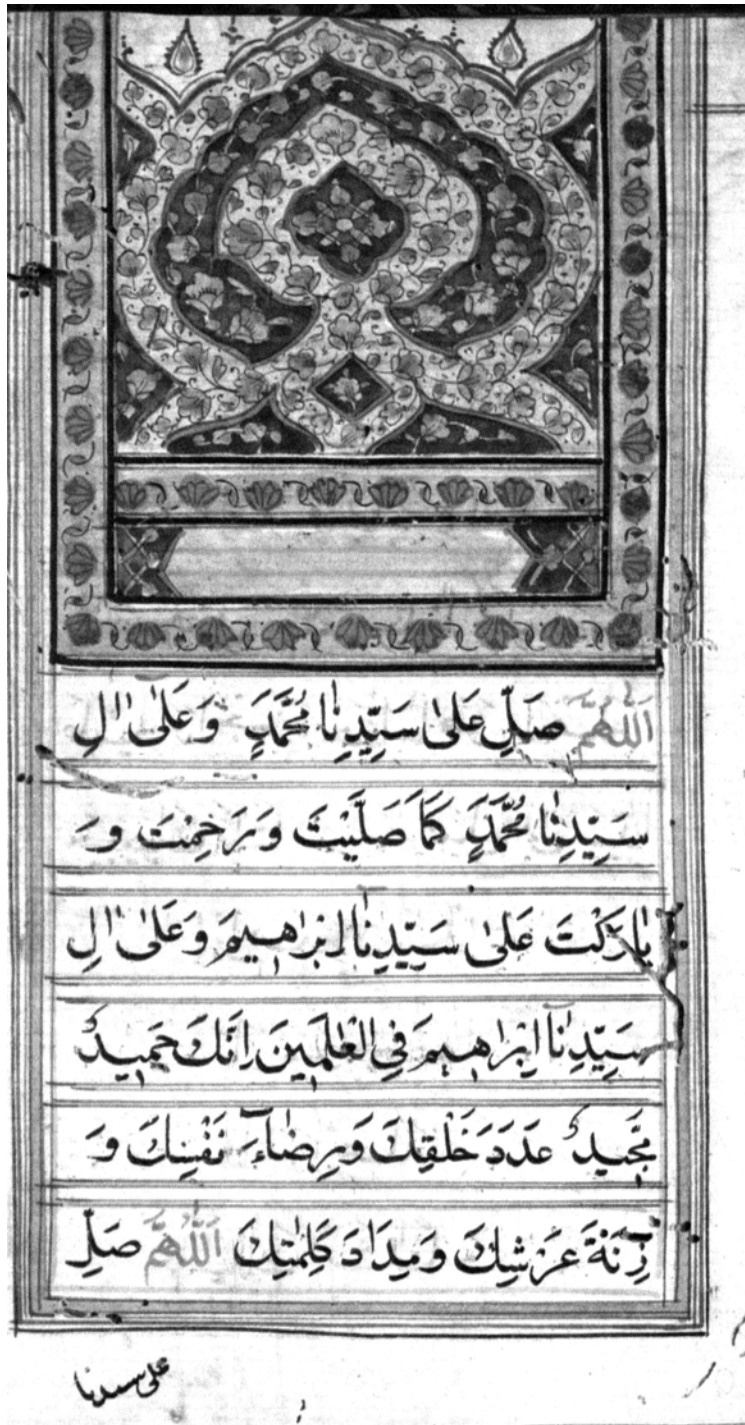 اَللّٰهُمَّ صَلِّ عَلٰى سَيِّدِنَا مُحَمَّدٍ وَعَلٰى اٰلِ
سَيِّدِنَا مُحَمَّدٍ كَمَا صَلَّيْتَ وَرَحِمْتَ وَ
بَارَكْتَ عَلٰى سَيِّدِنَا اِبْرٰهِيمَ وَعَلٰى اٰلِ
سَيِّدِنَا اِبْرٰهِيمَ فِي الْعٰلَمِينَ اِنَّكَ حَمِيدٌ
مَجِيدٌ عَدَدَ خَلْقِكَ وَرِضَاءَ نَفْسِكَ وَ
زِنَةَ عَرْشِكَ وَمِدَادَ كَلِمٰتِكَ اَللّٰهُمَّ صَلِّ
على سيدنا